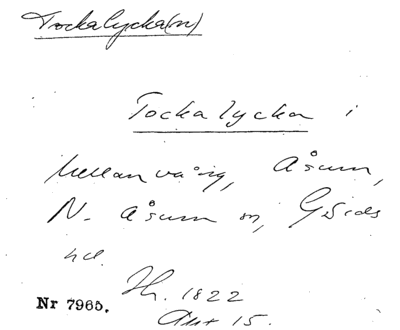 Tockalycka(n)
Tockalycka i
Mellanvång, Åsum,
N. Åsum sn, Gärds
hd.
Sh. 1822
Akt 15.
Nr 7965.